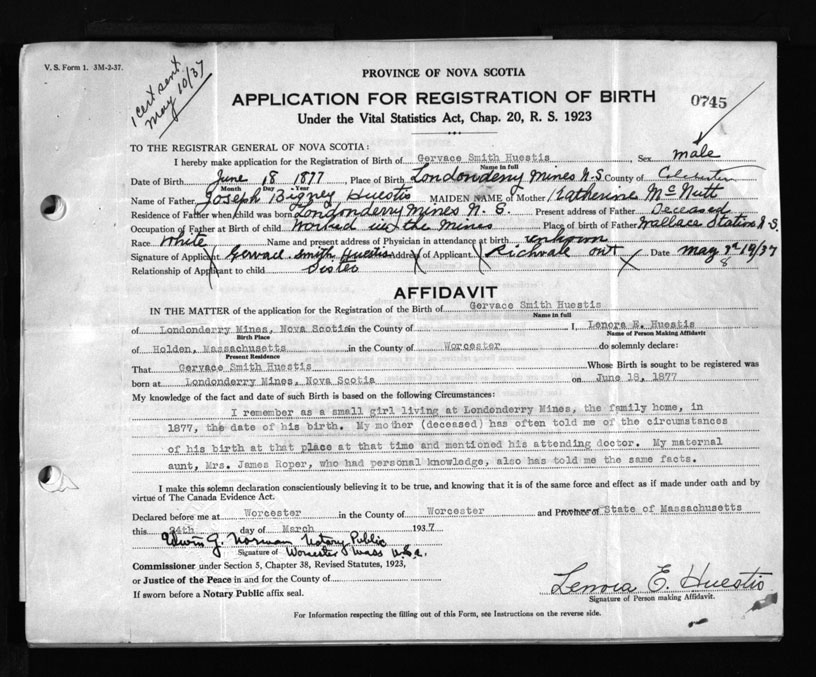 V. S. Form 1. 3M-2-37.
1 cert sent
May 10/37
PROVINCE OF NOVA SCOTIA
APPLICATION FOR REGISTRATION OF BIRTH
0745
Under the Vital Statistics Act, Chap. 20, R. S. 1923
TO THE REGISTRAR GENERAL OF NOVA SCOTIA:
I hereby make application for the Registration of Birth of Gervace Smith Huestis Sex male
Name in full
Date of Birth June 18 1877, Place of Birth Londonderry Mines N.S. County of Colchester
Month Day Year
Name of Father Joseph Bigney Huestis MAIDEN NAME of Mother Catherine McNutt
Residence of Father when child was born Londonderry Mines N. S. Present address of Father Deceased
Occupation of Father at Birth of child Worked in the mines Place of birth of Father Wallace Station N.S.
Race White Name and present address of Physician in attendance at birth unknown
Signature of Applicant Gervace Smith Huestis Address of Applicant Richvale Ont Date May 8 1937
Relationship of Applicant to child Sister
AFFIDAVIT
IN THE MATTER of the application for the Registration of the Birth of Gervace Smith Huestis
Name in full
of Londonderry Mines, Nova Scotia in the County of I, Lenora E. Huestis
Birth Place Name of Person Making Affidavit
of Holden, Massachusetts in the County of Worcester do solemnly declare:
Present Residence
That Gervace Smith Huestis Whose Birth is sought to be registered was
born at Londonderry Mines, Nova Scotia on June 18, 1877
My knowledge of the fact and date of such Birth is based on the following Circumstances:
I remember as a small girl living at Londonderry Mines, the family home, in
1877, the date of his birth. My mother (deceased) has often told me of the circumstances
of his birth at that place at that time and mentioned his attending doctor. My maternal
aunt, Mrs. James Roper, who had personal knowledge, also has told me the same facts.
I make this solemn declaration conscientiously believing it to be true, and knowing that it is of the same force and effect as if made under oath and by
virtue of The Canada Evidence Act.
Declared before me at Worcester in the County of Worcester and Province of State of Massachusetts
this 24th day of March 1937
Edwin G. Norman Notary Public
Signature of Worcester Mass U.S.A.
Commissioner under Section 5, Chapter 38, Revised Statutes, 1923,
or Justice of the Peace in and for the County of
Lenora E. Huestis
If sworn before a Notary Public affix seal.
Signature of Person making Affidavit.
For Information respecting the filling out of this Form, see Instructions on the reverse side.